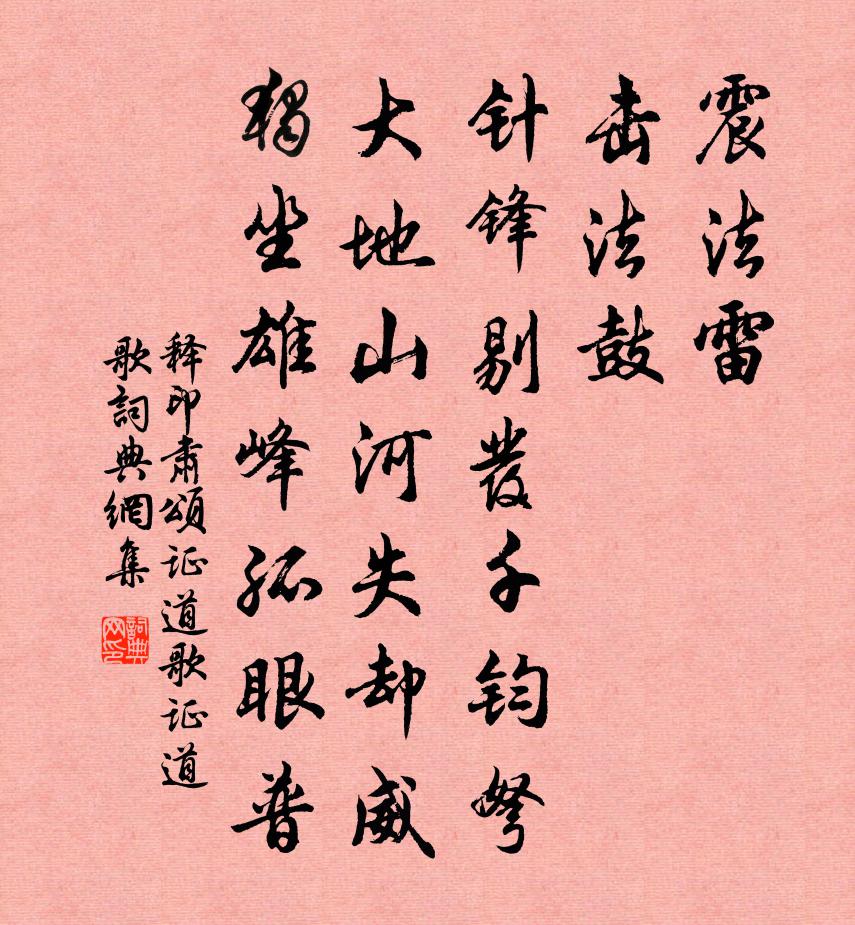 震法雷
击法鼓
针锋剔發千钧弩
大地山河失却威
獨坐雄峰孤眼普
释印肃頌证道歌证道
歌詞典網集
詞典网印